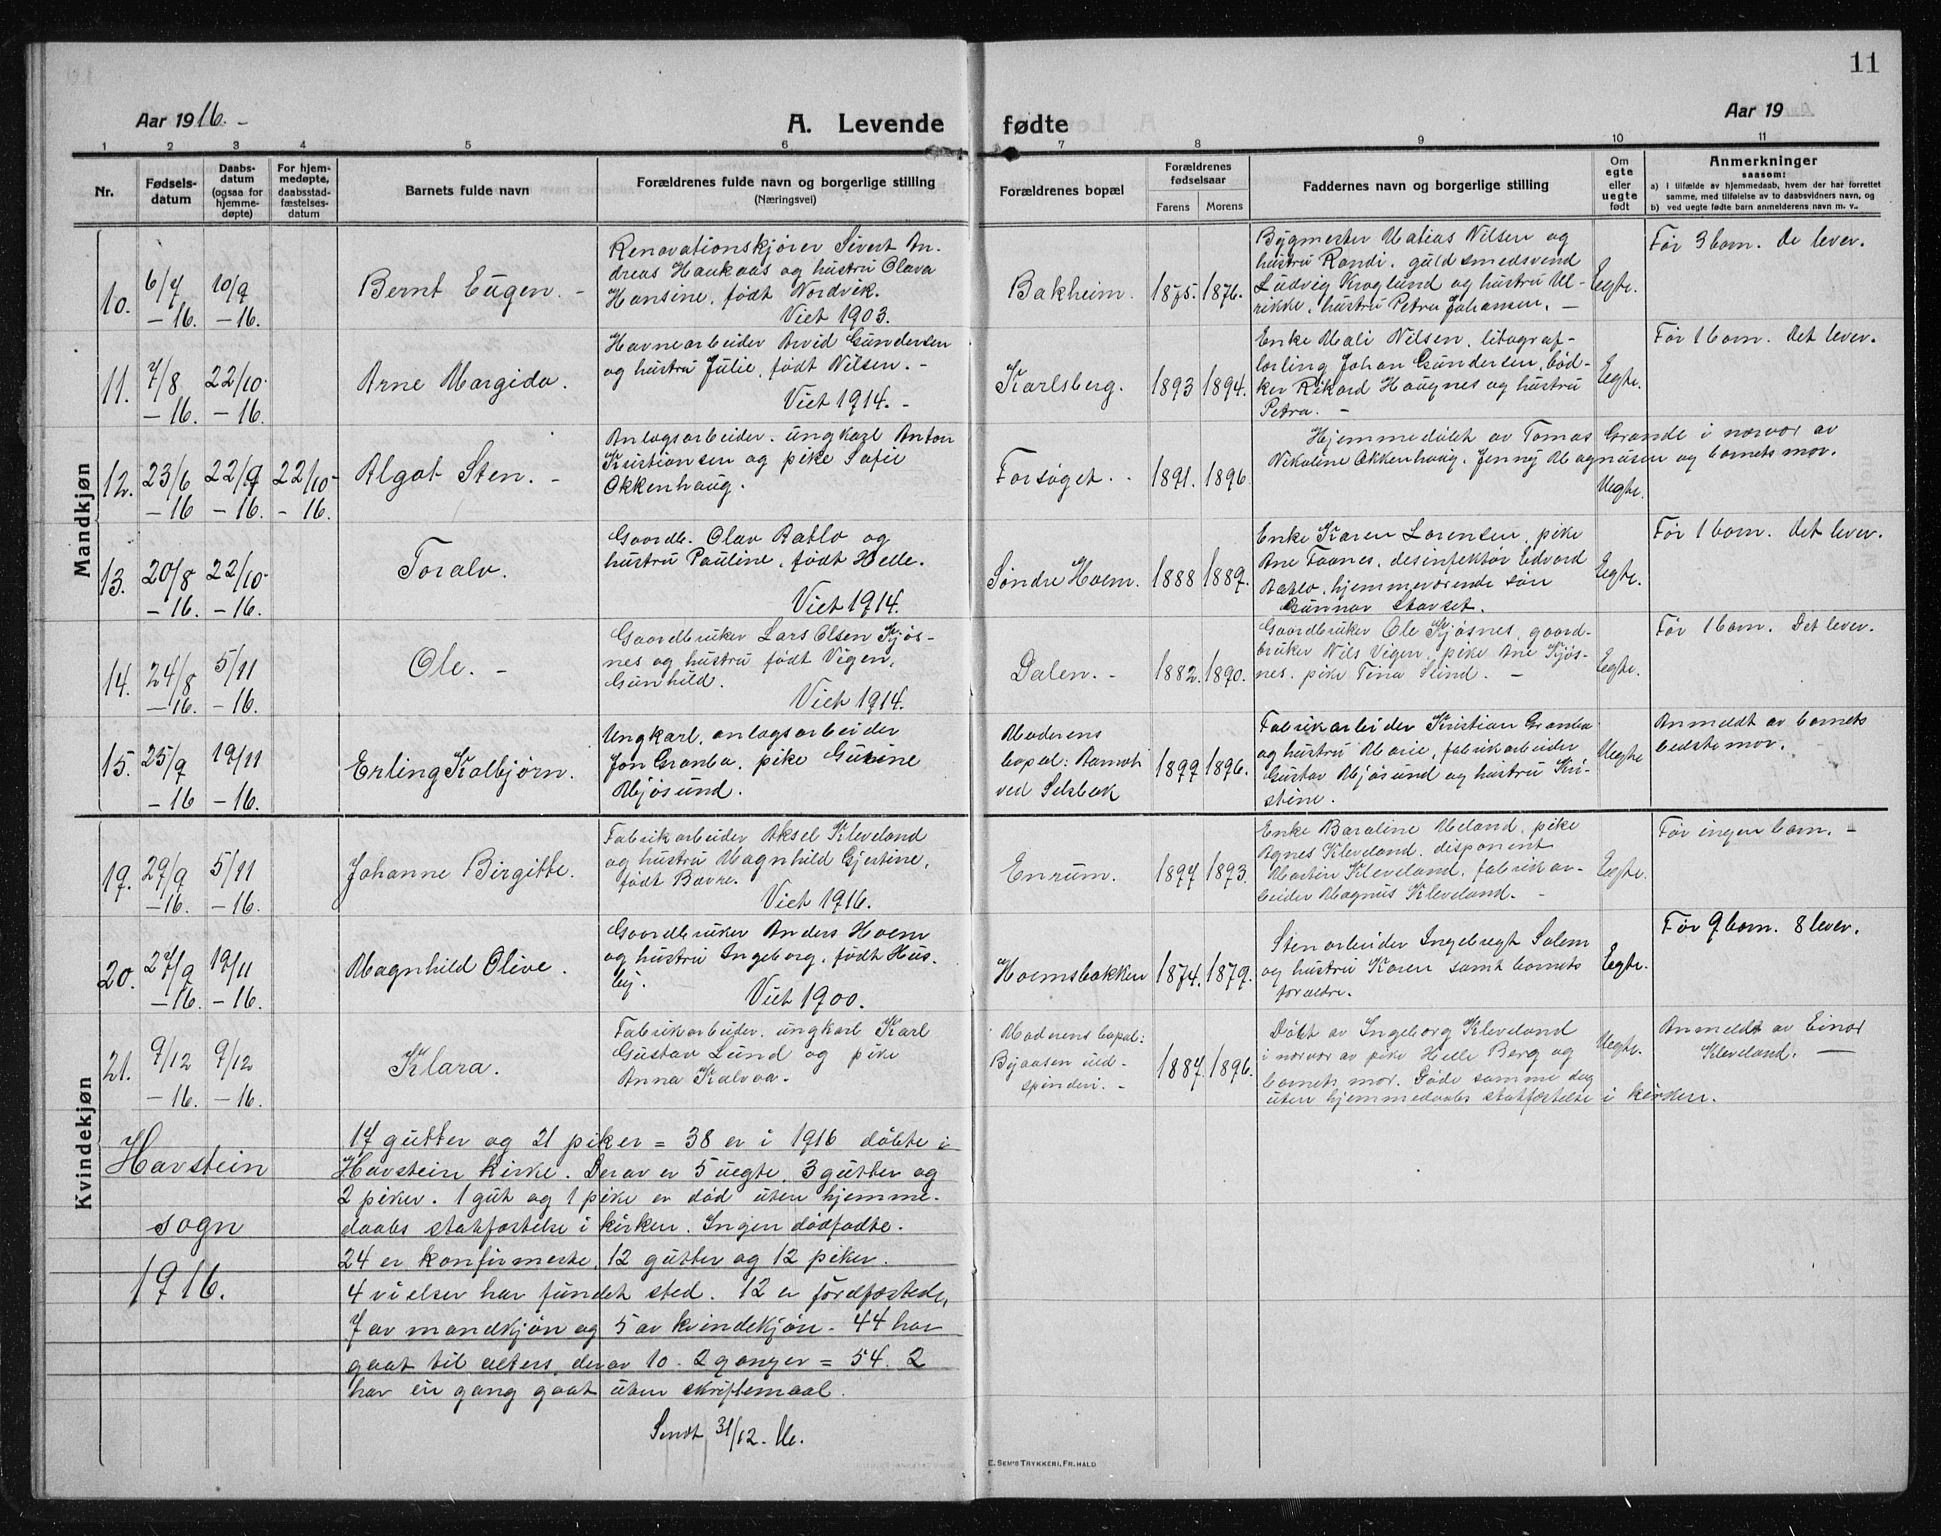 11
Aar 1916. -
A. Levende fødte
Aar 19
1 2 3 4 5 6 7 8 9 10 11
Nr.
Fødsels-
datum
Daabs-
datum
(ogsaa for
hjemme-
døpte)
For hjem-
medøpte,
daabsstad-
fæstelses-
datum
Barnets fulde navn
Forældrenes fulde navn og borgerlige stilling
(Næringsvei)
Forældrenes bopæl
Forældrenes
fødselsaar
Farens Morens
Faddernes navn og borgerlige stilling
Om
egte
eller
uegte
født
Anmerkninger
saasom:
a) i tilfælde av hjemmedaab, hvem der har forrettet
samme, med tilføielse av to daabsvidners navn, og
b) ved uegte fødte barn anmelderens navn m. v..
Mandkjøn
10.
6/7
- 16.
10/9
- 16.
Bernt Eugen. -
Renovationskjører Sivert An-
dreas Haukaas og hustru Olava
Hansine, født Nordvik.
Viet 1903.
Bakheim.
1875. 1876.
Bygmester Matias Nilsen og
hustru Randi, guldsmedsvend
Ludvig Kroglund og hustru Ul-
rikke, hustru Petra Johansen. -
Egte.
Før 3 barn. De lever.
11.
7/8
- 16.
22/10
- 16.
Arne Margido.
Havnearbeider Arvid Gundersen
og hustru Julie, født Nilsen. -
Viet 1914. -
Karlsberg.
1893 1894.
Enke Mali Nilsen, litograf-
lærling Johan Gundersen, bød-
ker Rikard Haugnes og hustru
Petra. -
Egte.
Før 1 barn. Det lever.
12.
23/6
- 16
22/9
- 16.
22/10
- 16.
Algot Sten. -
Anlagsarbeider, ungkarl Anton
Kristiansen og pike Sofie
Okkenhaug.
Forsøget. -
1891. 1896
Hjemmedøbt av Tomas Grande i nærvær av
Nikoline Okkenhaug, Jenny Magnusen og barnets mor.
Uegte.
13.
20/8
- 16.
22/10
- 16.
Toralv.
Gaardb. Olav Ratlo og
hustru Pauline, født Helle.
Viet 1914.
Søndre Hoem.
1888 1889.
Enke Karen Lorensen, pike
Ane Foones, desinfektør Edvard
Ratlo, hjemmeværende søn
Gunnar Stavset.
Egte.
Før 1 barn. Det lever.
14.
24/8
- 16.
5/11
- 16.
Ole. -
Gaardbruker Lars Olsen Kjøs-
nes og hustru født Vigen,
Gunhild.
Viet 1914.
Dalen. -
1882. 1890.
Gaardbruker Ole Kjøsnes, gaard-
bruker Nils Vigen, pike Ane Kjøs-
nes, pike Tina Slind. -
Egte.
Før 1 barn. Det lever.
15.
25/9
- 16
19/11
- 16.
Erling Kolbjørn.
Ungkarl, anlagsarbeider
Jon Granbo, pike Gurine
Mjøsund.
Moderens
bopæl: Aamot
ved Selsbak
1899 1896.
Fabrikarbeider Kristian Granbo
og hustru Marie, fabrikarbeider
Gustav Mjøsund og hustru Kri-
stine.
Uegte
Anmeldt av barnets
bedstemor.
Kvindekjøn
19.
29/9
- 16.
5/11
- 16.
Johanne Birgitte.
Fabrikarbeider Aksel Kleveland
og hustru Magnhild Gjertine,
født Bavre.
Viet 1916.
Enrum.
1897 1893.
Enke Baroline Meland, pike
Agnes Kleveland, disponent
Martin Kleveland, fabrikar-
beider Magnus Kleveland. -
Egte.
Før ingen barn. -
20.
27/9
- 16.
19/11
- 16.
Magnhild Olive.
Gaardbruker Anders Hoem
og hustru Ingeborg, født Hus-
by.
Viet 1900.
Hoemsbakken
1874. 1879.
Stenarbeider Ingebregt Solem
og hustru Karen samt barnets
forældre.
Egte.
Før 9 barn. 8 lever.
21.
9/12
- 16.
9/12
- 16.
Klara.
Fabrikarbeider, ungkarl Karl
Gustav Lund og pike
Anna Kalvaa.
Moderens bopæl:
Byaasen uld-
spinderi. -
1887. 1896.
Døbt av Ingeborg Kleveland
i nærvær av pike Helle Berg og
barnets mor. Døde samme dag
uten hjemmedaabs stadfæstelse i kirken.
Uegte.
Anmeldt av Einar
Kleveland. -
Havstein
sogn
1916.
17 gutter og 21 piker = 38 er i 1916 døbte i
Havstein kirke. Derav er 5 uegte, 3 gutter og
2 piker. 1 gut og 1 pike er død uten hjemme-
daabs stadfæstelse i kirken. Ingen dødfødte.
24 er konfirmerte, 12 gutter og 12 piker.
4 vielser har fundet sted. 12 er jordfæstede,
7 av mandkjøn og 5 av kvindekjøn. 44 har
gaat til alters, derav 10 - 2 ganger = 54. 2
har en gang gaat uten skriftemaal.
Sendt 31/12.
E. SEM'S TRYKKERI, FR.HALD